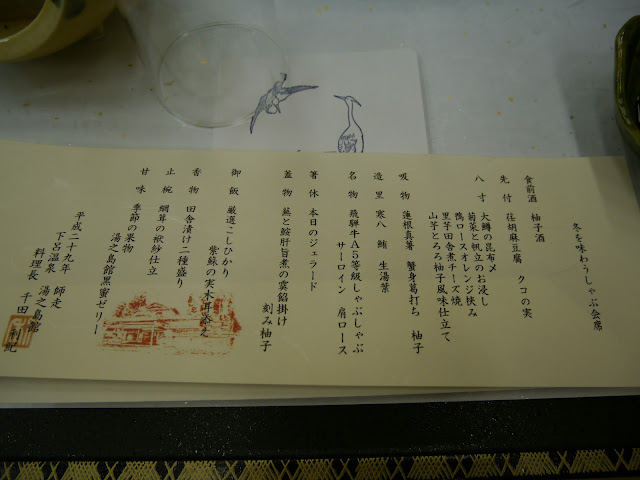 冬を味わうしゃぶ会席
食前酒 柚子酒
先付 荏胡麻豆腐 クコの実
八寸 大鱒の昆布〆
菊菜と帆立のお浸し
鴨ロースオレンジ挟み
里芋田舎煮チーズ焼
山芋とろろ柚子風味仕立て
吸物 蓮根真薯 蟹身葛打ち 柚子
造里 寒八 鮪 生湯葉
名物 飛騨牛A5等級しゃぶしゃぶ
サーロイン 肩ロース
箸休 本日のジェラード
蓋物 蕪と鮟肝旨煮の雲餡掛け
刻み柚子
御飯 厳選こしひかり
紫蘇の実木耳添え
香物 田舎漬け二種盛り
止椀 絹茸の袱紗仕立
甘味 季節の果物
湯之島館黒蜜ゼリー
平成二十九年 師走
下呂温泉 湯之島館
料理長 千田